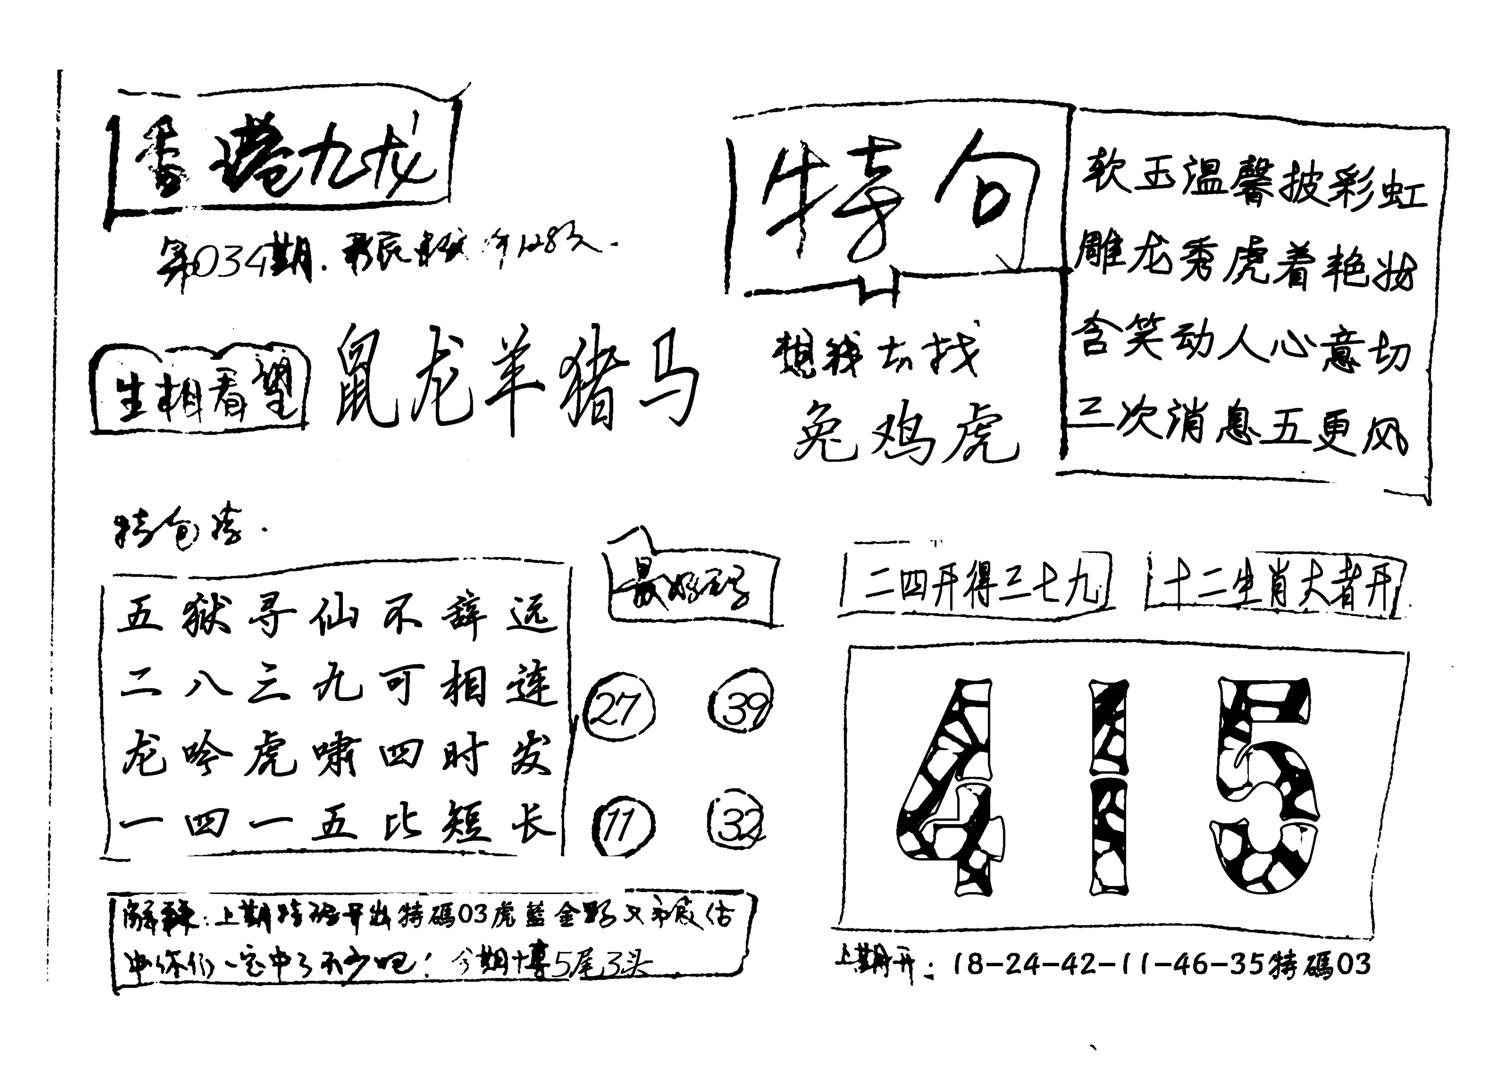 香港九龙
第034期.
生相看望
鼠龙羊猪马
特句
想钱去找
兔鸡虎
软玉温馨披彩虹
雕龙秀虎着艳妆
含笑动人心意切
三次消息五更风
特包
五狱寻仙不辞远
二八三九可相连
龙吟虎啸四时发
一四一五比短长
最好码
27 39
11 32
二四开得三七九
十二生肖大者开
415
解释:上期特码开出特碼03虎藍金野
你们一定中了不少吧!今期博5尾3头
上期开:18-24-42-11-46-35特碼03